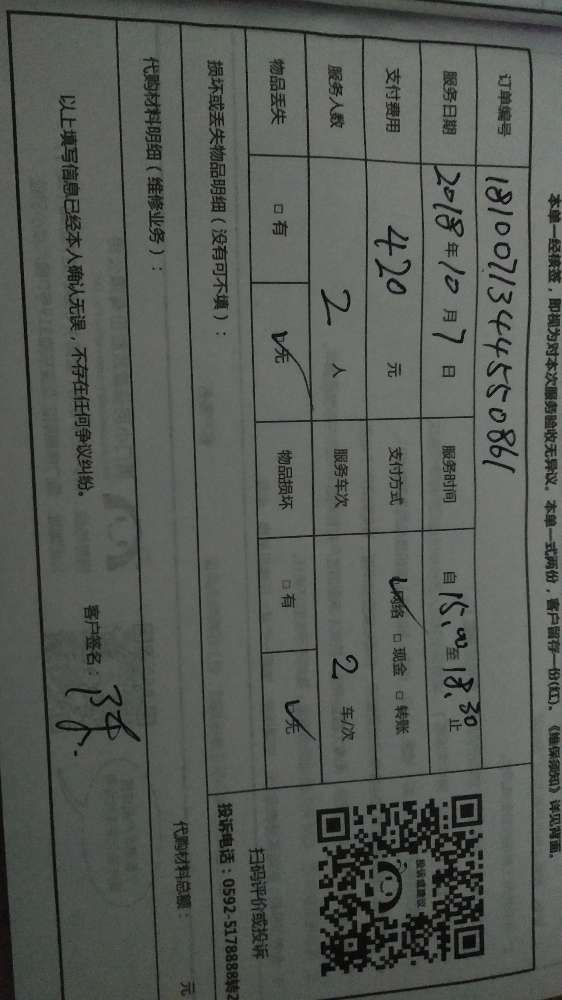 本单一经核签，即视为对本次服务验收无异议。本单一式两份，客户留存一份(红)。《维保须知》详见背面。
订单编号 181007134455086
服务日期 2018年10月7日 服务时间 自15:00至18:30止
支付费用 420元 支付方式 ☑网络 □现金 □转账
服务人数 2人 服务车次 2车/次
物品丢失 □有 ☑无 物品损坏 □有 ☑无
投诉或建议
扫码评价或投诉
投诉电话：0592-5178888转2
损坏或丢失物品明细（没有可不填）：
代购材料明细（维修业务）： 代购材料总额： 元
以上填写信息已经本人确认无误，不存在任何争议纠纷。 客户签名：